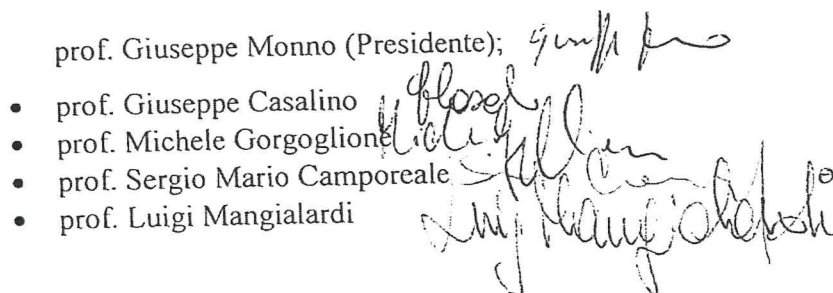 prof. Giuseppe Monno (Presidente);
• prof. Giuseppe Casalino
• prof. Michele Gorgoglione
• prof. Sergio Mario Camporeale
• prof. Luigi Mangialardi
Luigi Mangialardi